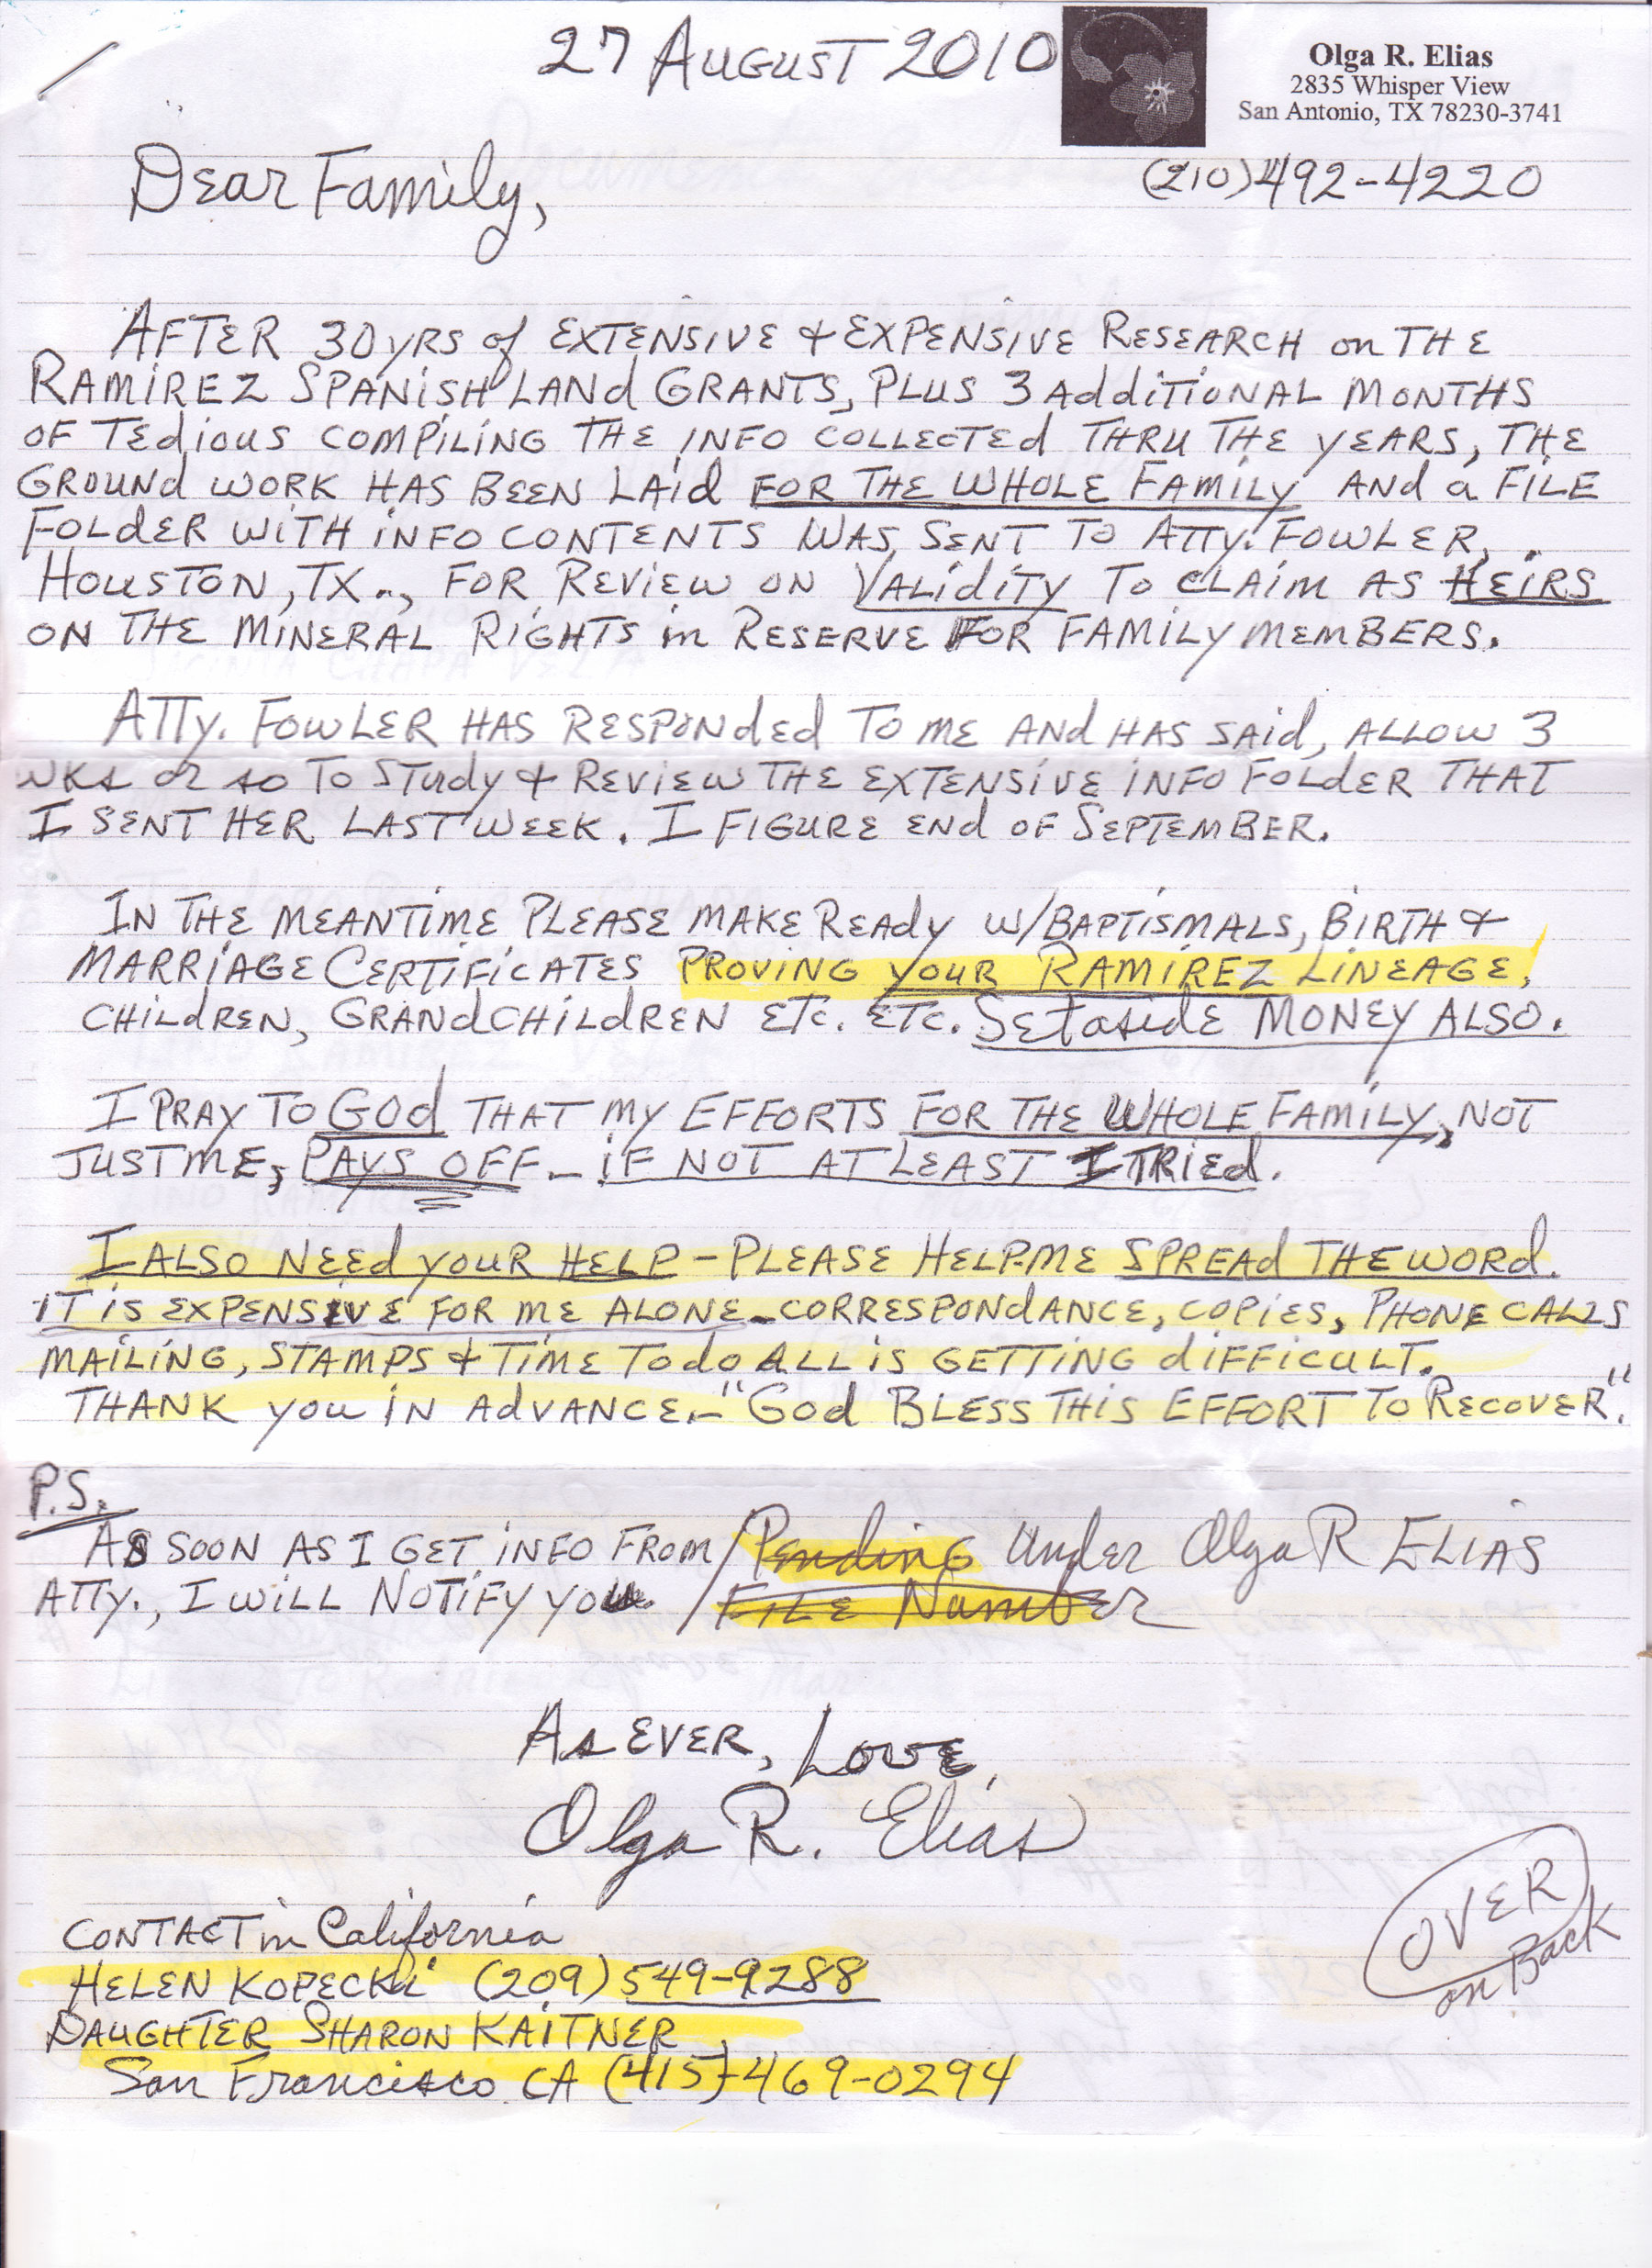 27 AUGUST 2010
Olga R. Elias
2835 Whisper View
San Antonio, TX 78230-3741
(210) 492-4220
Dear Family,
AFTER 30 YRS of EXTENSIVE & EXPENSIVE RESEARCH on THE
RAMIREZ SPANISH LANd GRANTS, PLUS 3 AddiTIONAL MONTHS
OF TEdious COMPILING THE INFO COLLECTEd THRU THE YEARS, THE
GROUNd WORK HAS BEEN LAId FOR THE WHOLE FAMILY ANd a FILE
FOLdER WITH INFO CONTENTS WAS SENT TO ATTy. FOWLER,
HOUSTON, TX., FOR REVIEW ON VALIdITY TO CLAIM AS HEIRS
ON THE MINERAL RIGHTS in RESERVE FOR FAMILY MEMBERS.
ATTy. FOWLER HAS RESPONdEd TO ME ANd HAS SAId, ALLOW 3
WKs or so TO STudy & REVIEW THE EXTENSIVE INFO FOLDER THAT
I SENT HER LAST WEEK. I FIGURE END OF SEPTEMBER.
IN THE MEANTIME PLEASE MAKE REAdy W/BAPTISMALS, BIRTH &
MARRIAGE CERTIFICATES PROVING YOUR RAMIREZ LINEAGE,
CHILdREN, GRANdCHILdREN ETC. ETC. SET asidE MONEY ALSO.
I PRAY TO GOd THAT MY EFFORTS FOR THE WHOLE FAMILY, NOT
JUST ME, PAYS OFF - IF NOT AT LEAST I TRIEd.
I ALSO NEEd YOUR HELP - PLEASE HELP ME SPREAD THE WORD.
IT IS EXPENSIVE FOR ME ALONE - CORRESPONdANCE, COPIES, PHONE CALLS
MAILING, STAMPS & TIME TO do ALL IS GETTING dIFFICULT.
THANK you IN AdVANCE. - "GOd BLESS THIS EFFORT TO RECOVER".
P.S.
AS SOON AS I GET INFO FROM / Pending Under Olga R ELIAS
ATTy., I WILL NOTIFY YOU. / FILE Number
As EVER, LOVE,
Olga R. Elias
CONTACT in California
HELEN KOPECKi (209) 549-9288
DAUGHTER SHARON KAITNER
San Francisco CA (415)-469-0294
OVER
on Back